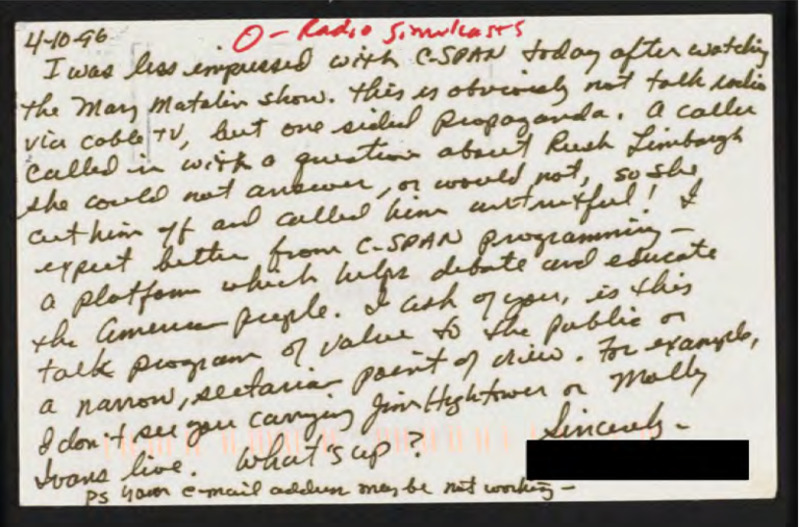 4-10-96
O - Radio Simulcasts
I was less impressed with C-SPAN today after watching
the Mary Matalin show. This is obviously not talk radio
via cable TV, but one sided propaganda. A caller
called in with a question about Rush Limbaugh
she could not answer, or would not, so she
cut him off and called him untruthful! I
expect better from C-SPAN programming -
a platform which helps debate and educate
the American people. I ask of you, is this
talk program of value to the public or
a narrow, sectarian point of view. For example,
I don't see you carrying Jim Hightower or Molly
Ivans live. What's up? Sincerely -
PS Your e-mail address may be not working -